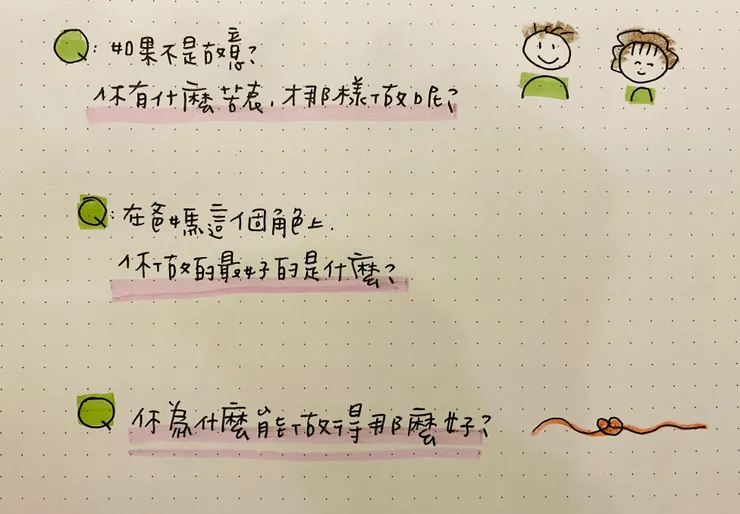 Q：如果不是故意？
你有什麼苦衷，才那樣做呢？
Q：在爸媽這個角色上，
你做的最好的是什麼？
Q 你為什麼能做得那麼好？